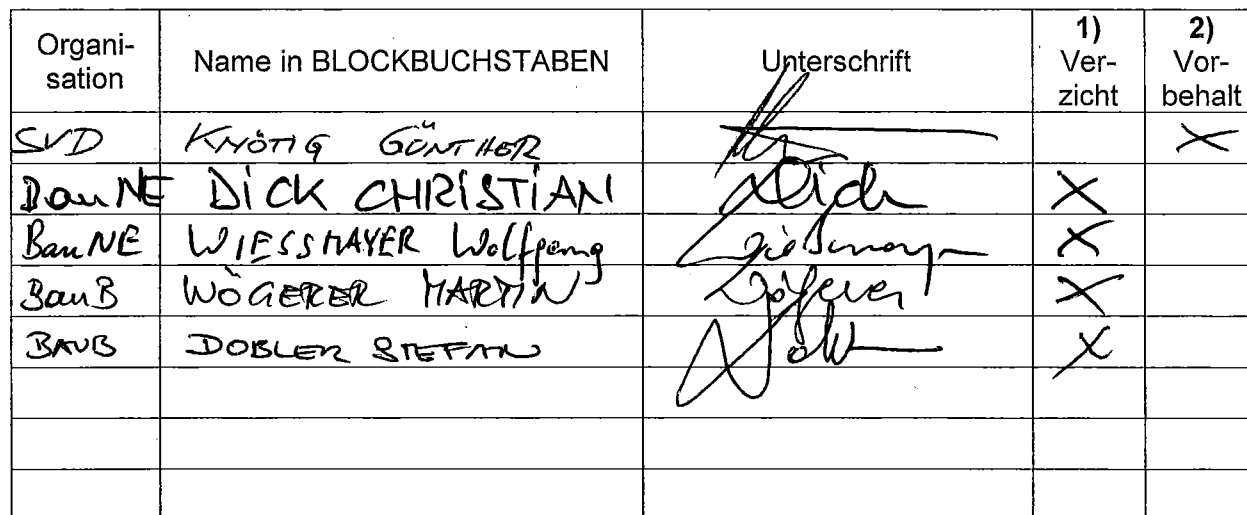 Organi-
sation
Name in BLOCKBUCHSTABEN
Unterschrift
1)
Ver-
zicht
2)
Vor-
behalt
SVD KNÖTIG GÜNTHER X
BauNE DICK CHRISTIAN Dick X
BauNE WIESSMAYER Wolfgang Wießmayer X
BauB WÖGERER MARTIN Wögerer X
BAUB DOBLER STEFAN X